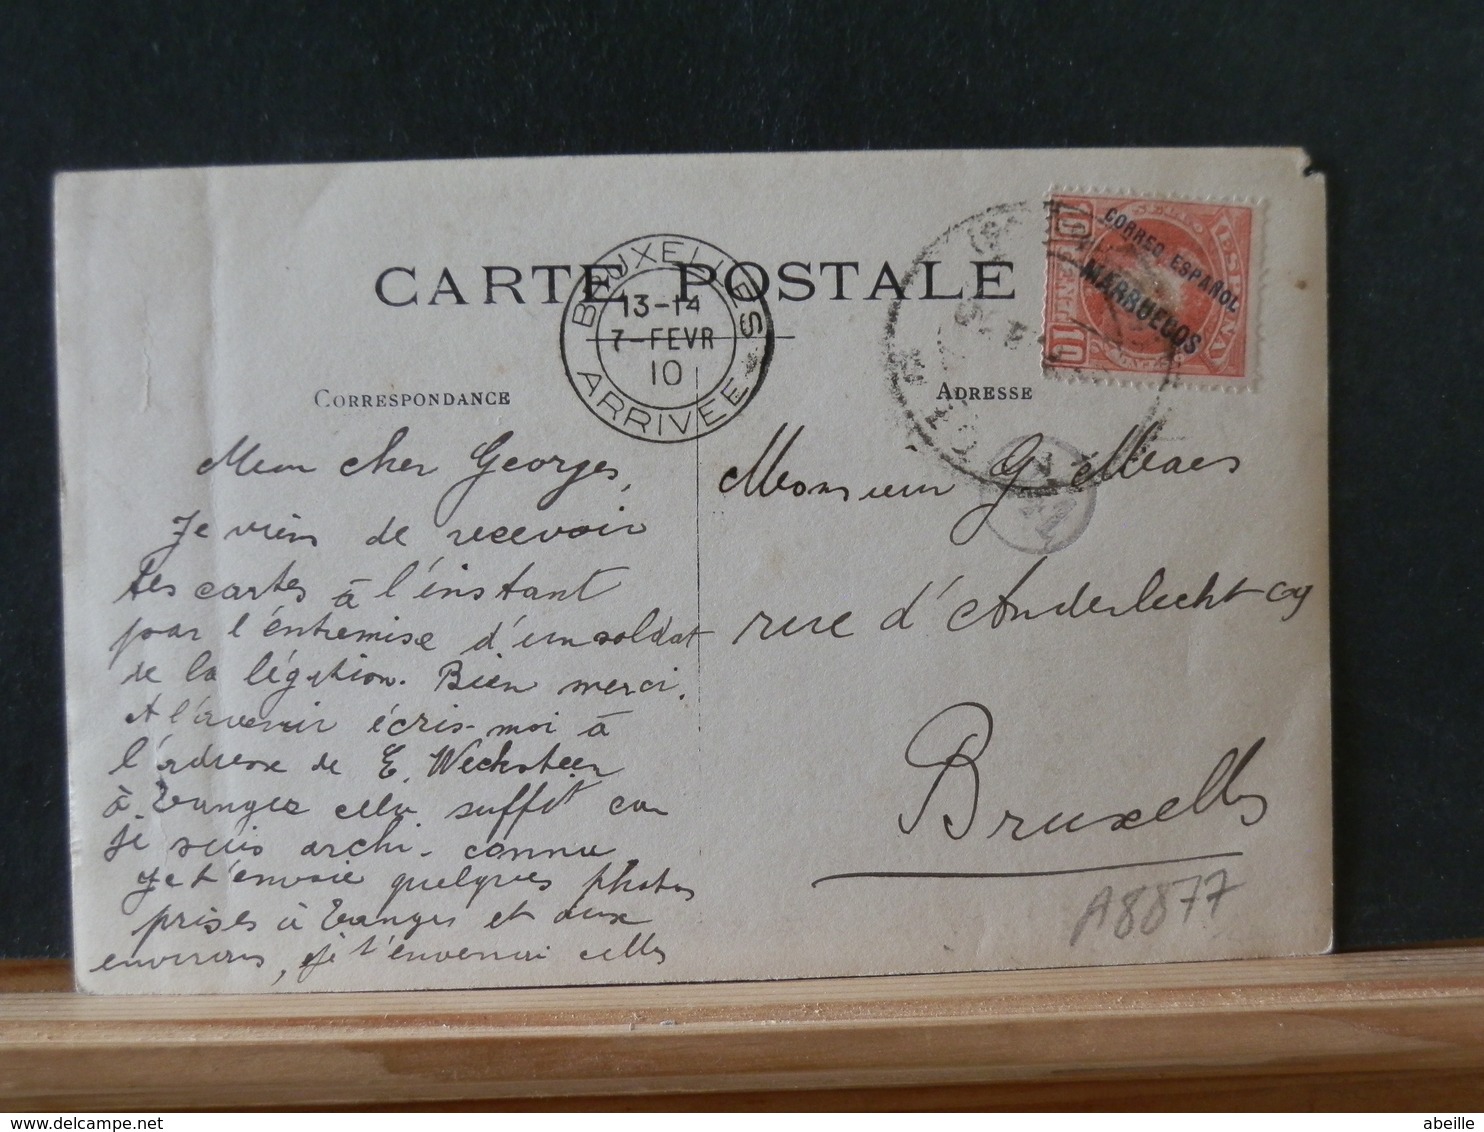 CARTE POSTALE
CORRESPONDANCE
ADRESSE
BRUXELLES
13-14
7-FEVR
10
ARRIVEE
CORREO ESPAÑOL
MARRUECOS
ESPAÑA
10
10
Mon cher Georges,
Je viens de recevoir
tes cartes à l'instant
par l'entremise d'un soldat
de la légation. Bien merci.
A l'avenir écris-moi à
l'adresse de E. Wechsteen
à Tanger cela suffit car
je suis archi-connu
Je t'envoie quelques photos
prises à Tanger et aux
environs, je t'enverrai celles
Monsieur G. Maes
rue d'Anderlecht 109
Bruxelles
A8877
© delcampe.net
abeille